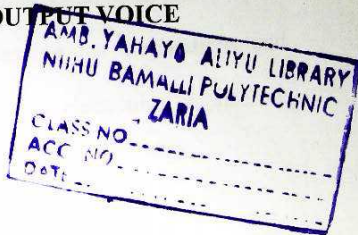 OUTPUT VOICE
AMB. YAHAYA ALIYU LIBRARY
NUHU BAMALLI POLYTECHNIC
ZARIA
CLASS NO
ACC NO
DATE